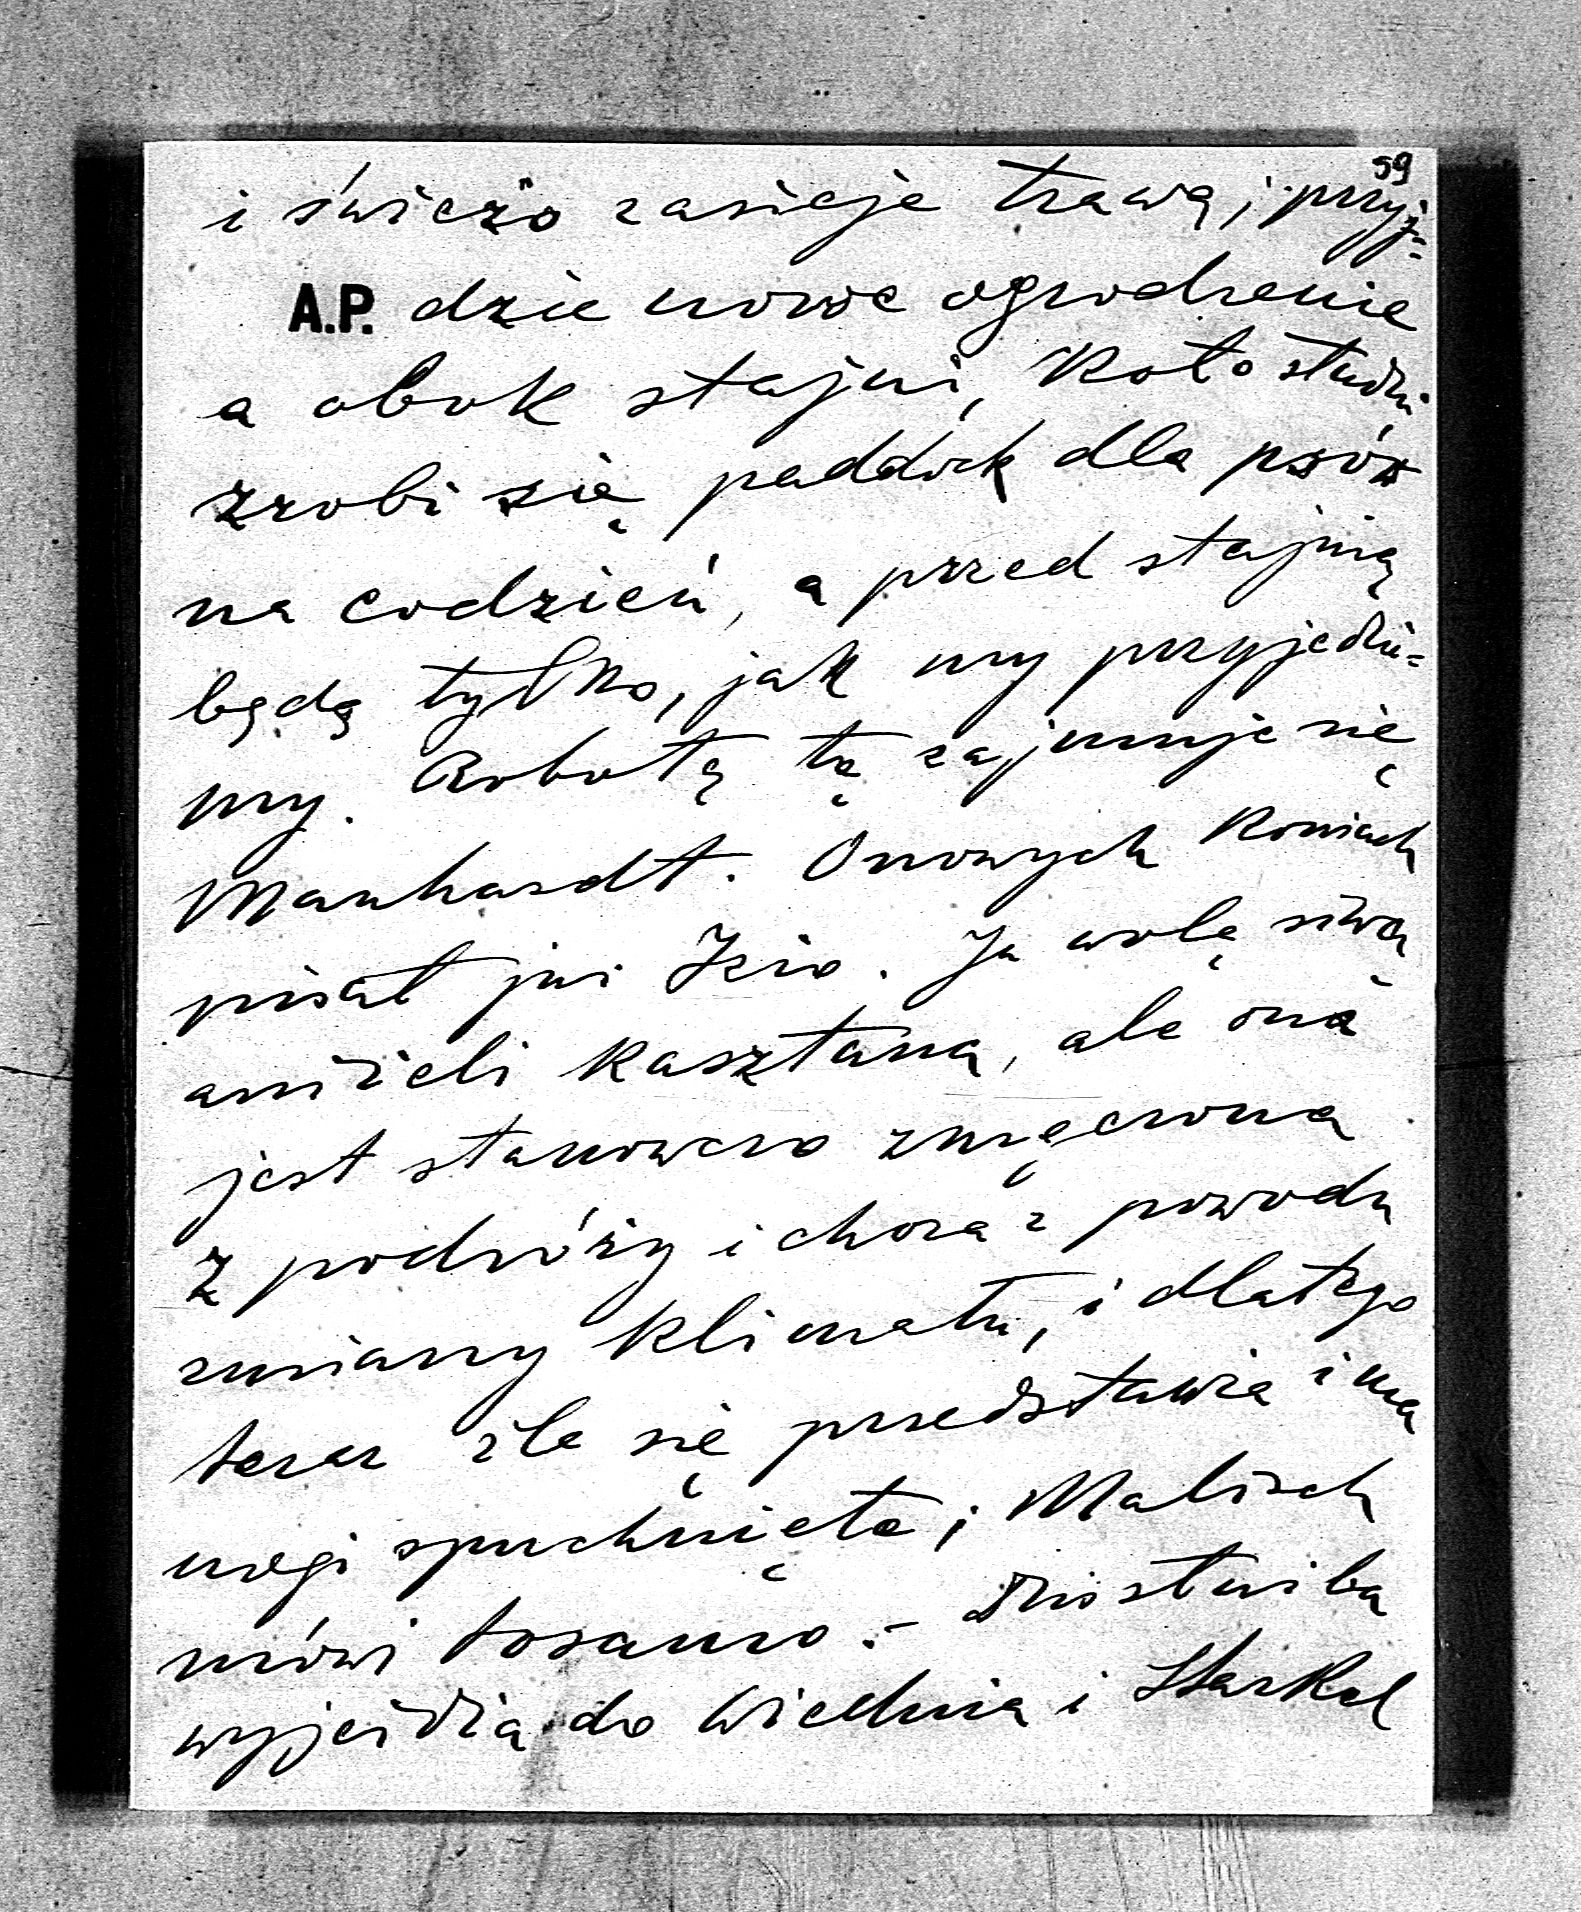 59
i świeżo zasieje trawą; przyj=
A.P. dzie nowe ogrodzenie
a obok stajni, koło studni
zrobi się paddock dla psów
na codzień, a przed stajnią
będą tylko, jak my przyjedzie=
my. Robotą tą zajmuje się
Manhardt. O nowych koniach
pisał już Izio. Ja wolę siwą
aniżeli kasztana, ale ona
jest stanowczo zmęczona
z podróży i chora z powodu
zmiany klimatu, i dlatego
teraz źle się przedstawia i ma
nogi spuchnięte; Malisch
mówi tosamo. – Dziś służba
wyjeżdża do Wiednia i